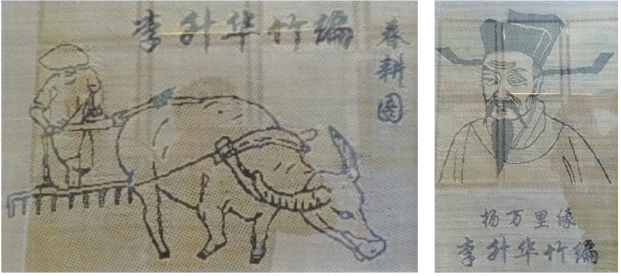 李升华竹编
春耕图
杨万里像
李升华竹编